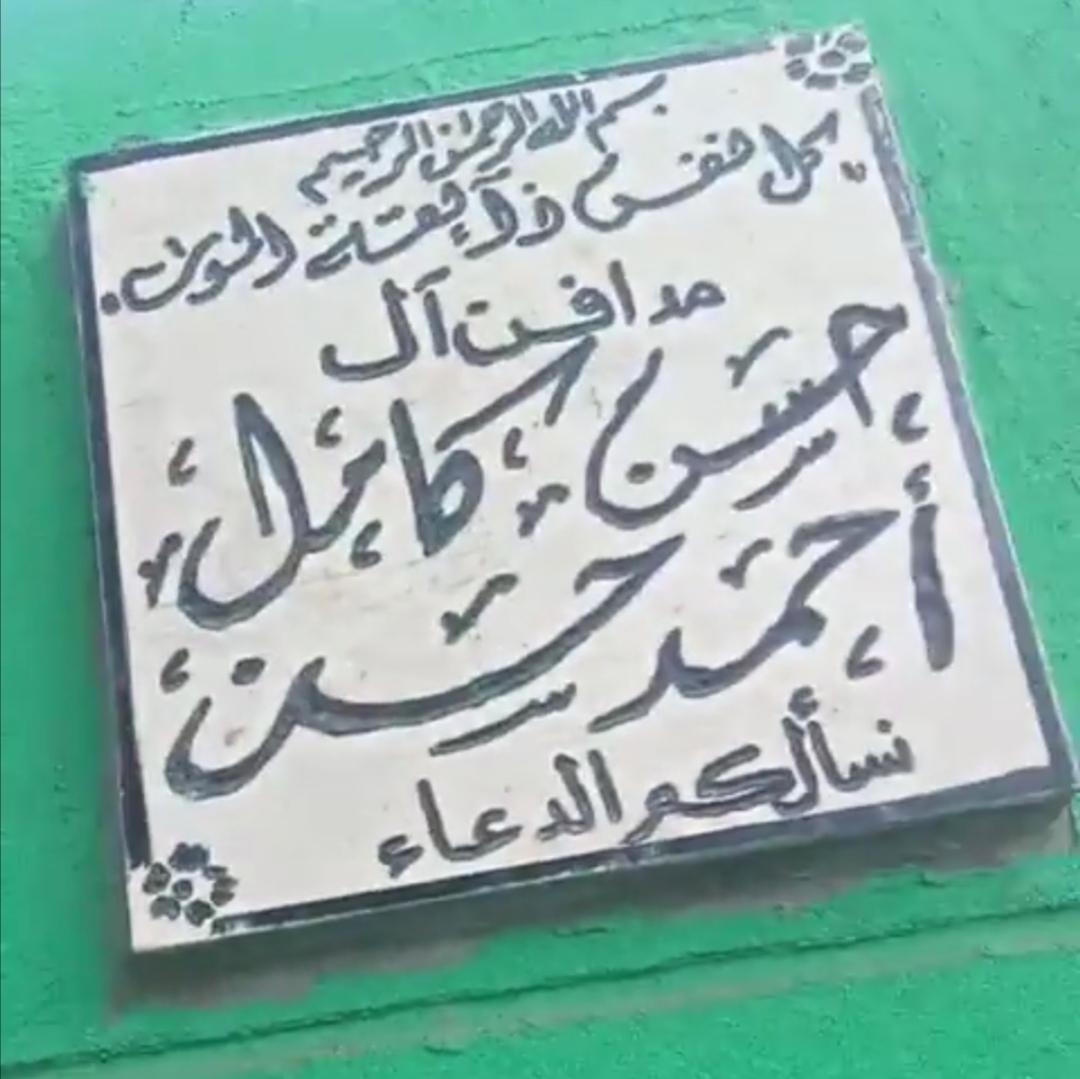 بسم الله الرحمن الرحيم
كل نفس ذآيقة الموت.
مدافن آل
حسن كامل
أحمد حسن
نسألكم الدعاء